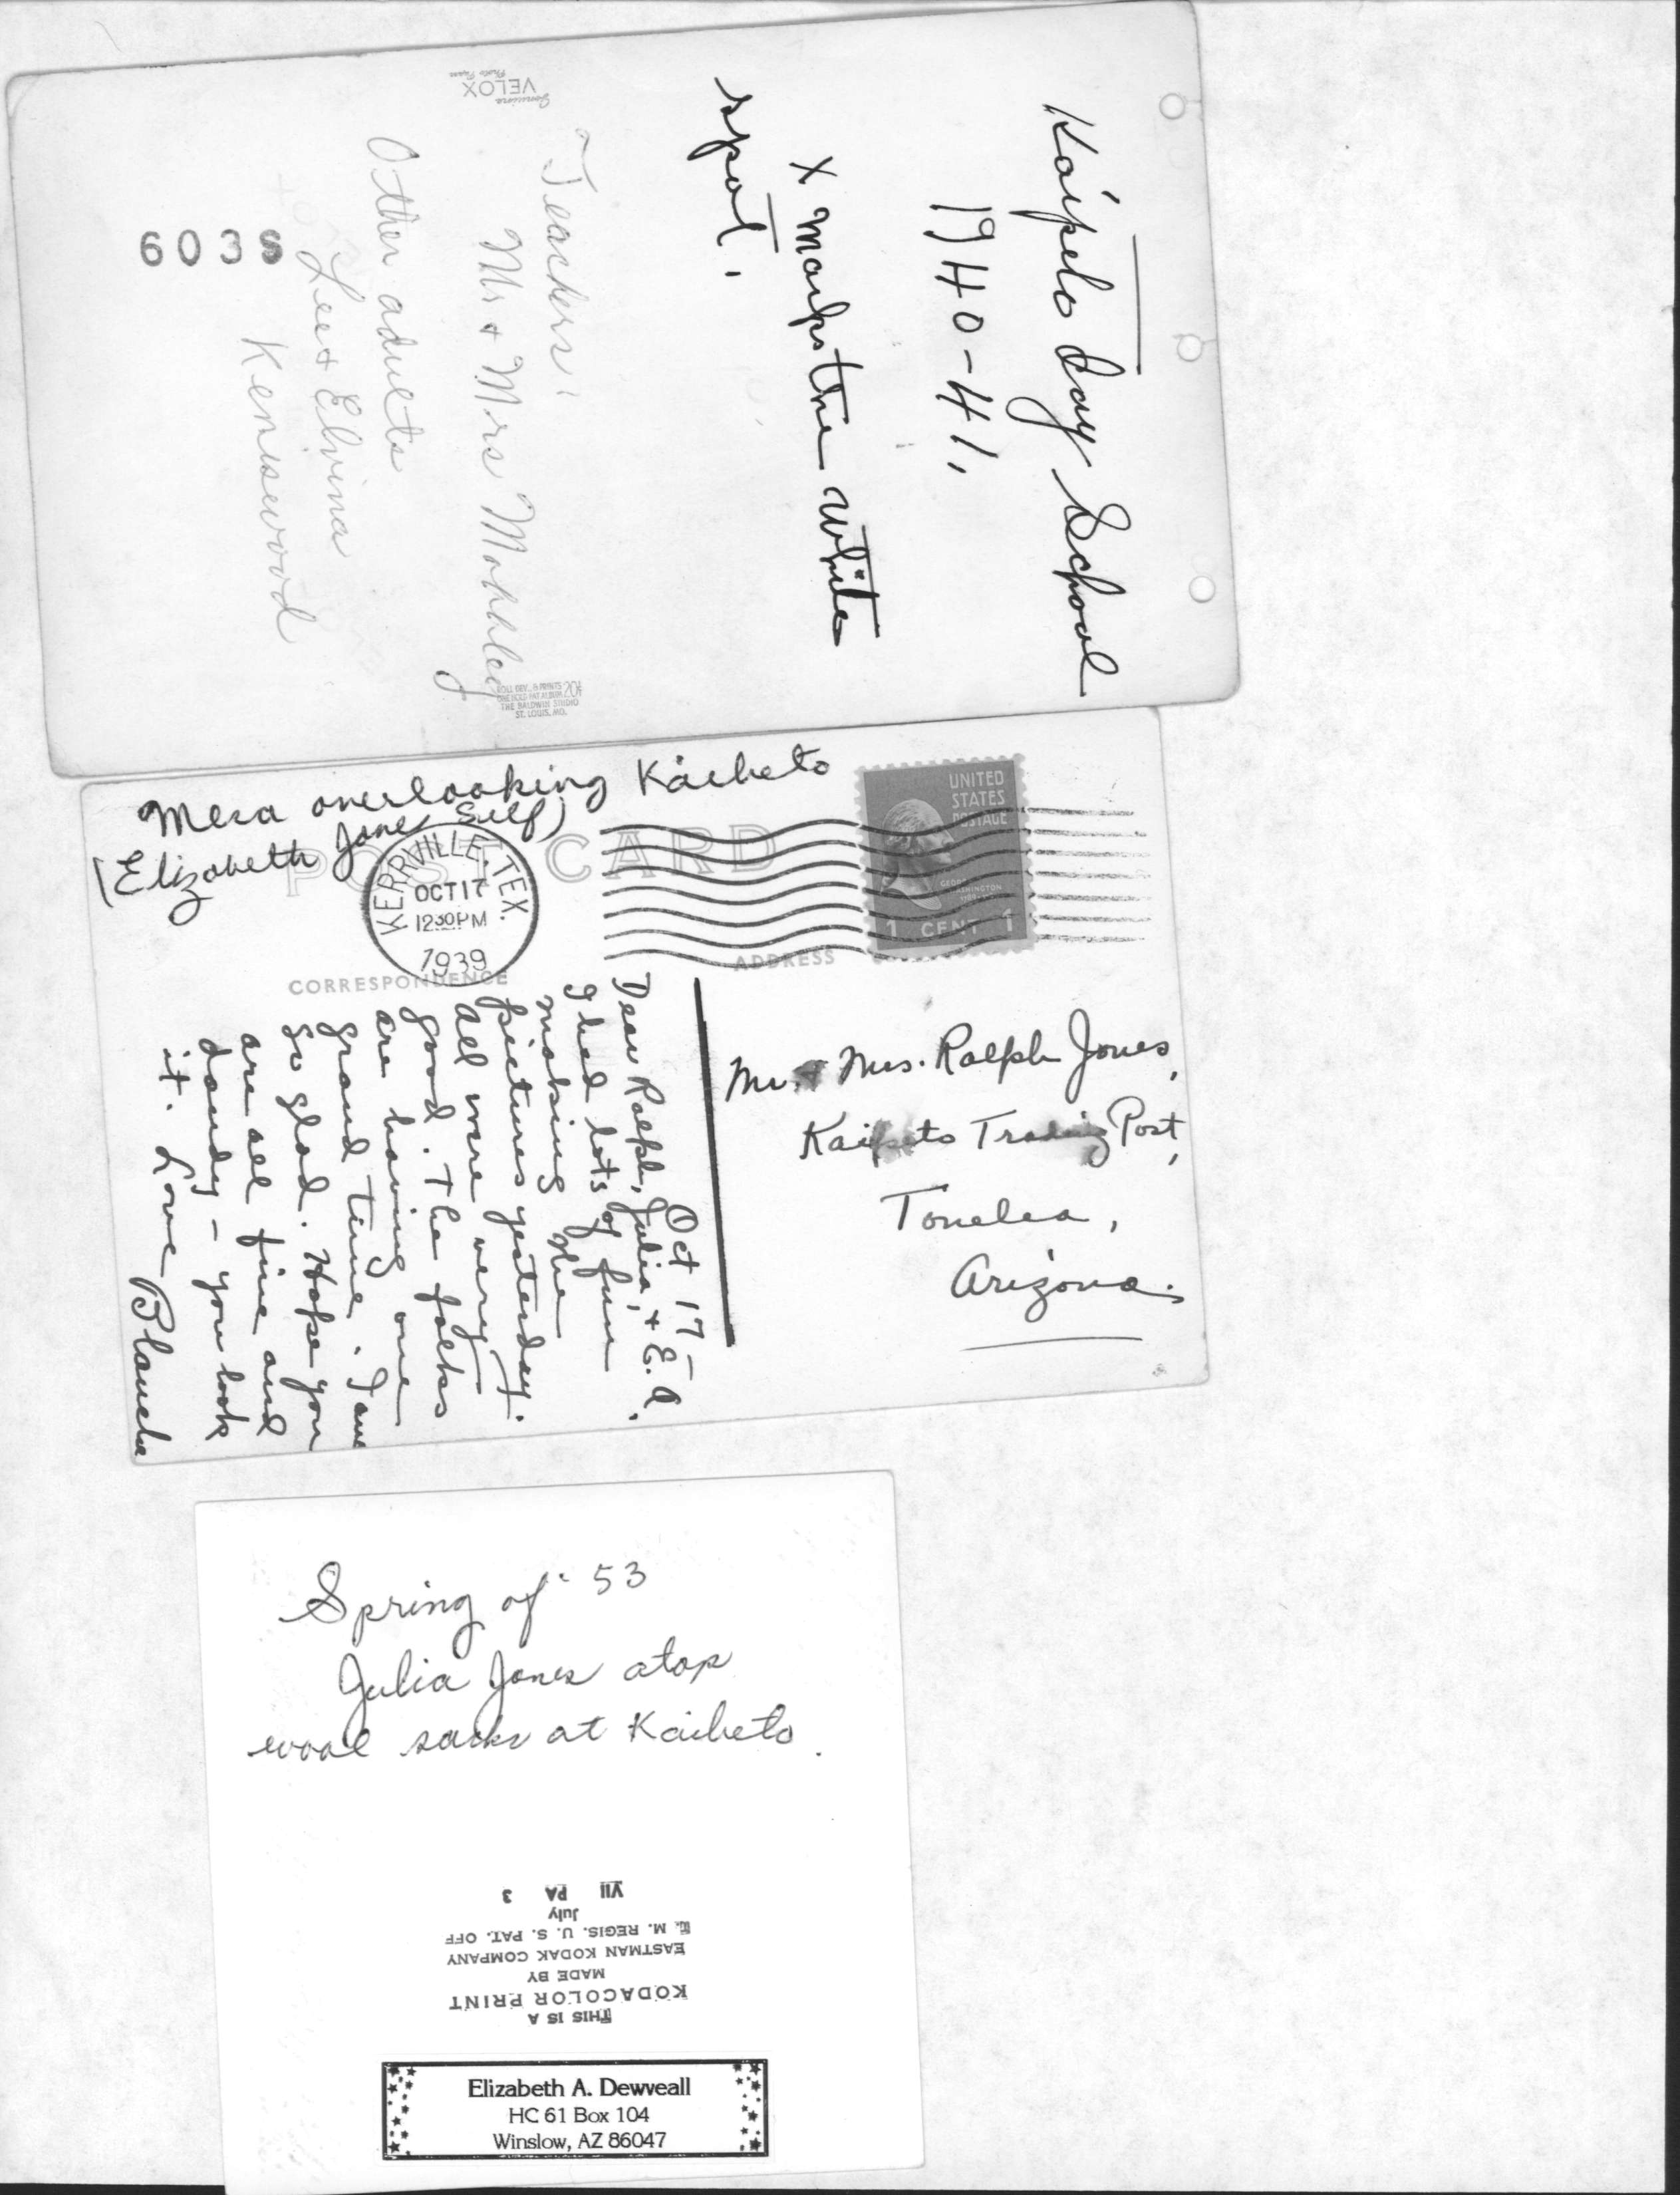 Kaipeto Day School
1940-41.
X marks the white
spot.
Teachers:
Mr + Mrs Mobbley
Other adults
Lee + Elvina
Keniswood
6038
VELOX
ROLL DEV. & PRINTS 20¢
THE BALDWIN STUDIO
ST. LOUIS, MO.
Mesa overlooking Kaibeto
(Elizabeth Jones Self)
POST CARD
KERRVILLE, TEX.
OCT 17
1230 PM
1939
UNITED
STATES
POSTAGE
GEORGE
WASHINGTON
1 CENT 1
CORRESPONDENCE
ADDRESS
Oct 17-
Dear Ralph, Julia, + E. A.
I had lots of fun
making the
pictures yesterday.
All were very
good. The folks
are having one
grand time. I am
so glad. Hope you
are all fine and
dandy - you look
it. Love Blanche
Mr. & Mrs. Ralph Jones,
Kaipeto Trading Post,
Tonelea,
Arizona.
Spring of '53
Julia Jones atop
wool sacks at Kaibeto.
THIS IS A
KODACOLOR PRINT
MADE BY
EASTMAN KODAK COMPANY
T. M. REGIS. U. S. PAT. OFF
July
VII PA 3
Elizabeth A. Dewveall
HC 61 Box 104
Winslow, AZ 86047